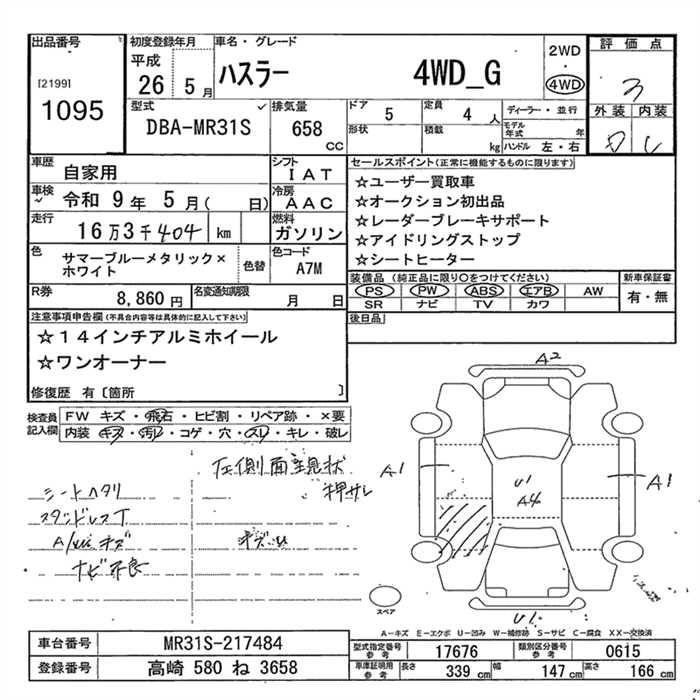 出品番号
[2199]
1095
初度登録年月
平成
26 5月
車名・グレード
ハスラー 4WD_G
2WD
・
4WD
評価点
3
型式
DBA-MR31S
排気量
658 CC
ドア
5
定員
4人
形状
積載
kg
ディーラー・並行
モデル年式 年
ハンドル 左・右
外装 内装
車歴
自家用
シフト
IAT
車検
令和 9年 5月( 日)
冷房
AAC
走行
16万3千404 km
燃料
ガソリン
色
サマーブルーメタリック×
ホワイト
色替
色コード
A7M
R券
8,860円
名変通知期限
月 日
セールスポイント(正常に機能するものに限ります)
☆ユーザー買取車
☆オークション初出品
☆レーダーブレーキサポート
☆アイドリングストップ
☆シートヒーター
装備品 (純正品に限り○をつけてください)
PS PW ABS エアB AW
SR ナビ TV カワ
新車保証書
有・無
後日品
注意事項申告欄(不具合内容等は具体的に記入して下さい)
☆14インチアルミホイール
☆ワンオーナー
修復歴 有〔箇所 〕
検査員
記入欄
FW キズ・飛石・ヒビ割・リペア跡・×要
内装 キズ・汚レ・コゲ・穴・スレ・キレ・破レ
左側面
現状
押サレ
シートヘタリ
スタッドレスT
キズ
ナビ不良
A2
A1
A1
U1
A4
U1
スペア
A-キズ E-エクボ U-凹み W-補修跡 S-サビ C-腐食 XX-交換済
車台番号
MR31S-217484
登録番号
高崎 580 ね 3658
型式指定番号
参考
17676
類別区分番号
参考
0615
車庫証明用
参考
長さ
339 cm
幅
147 cm
高さ
166 cm